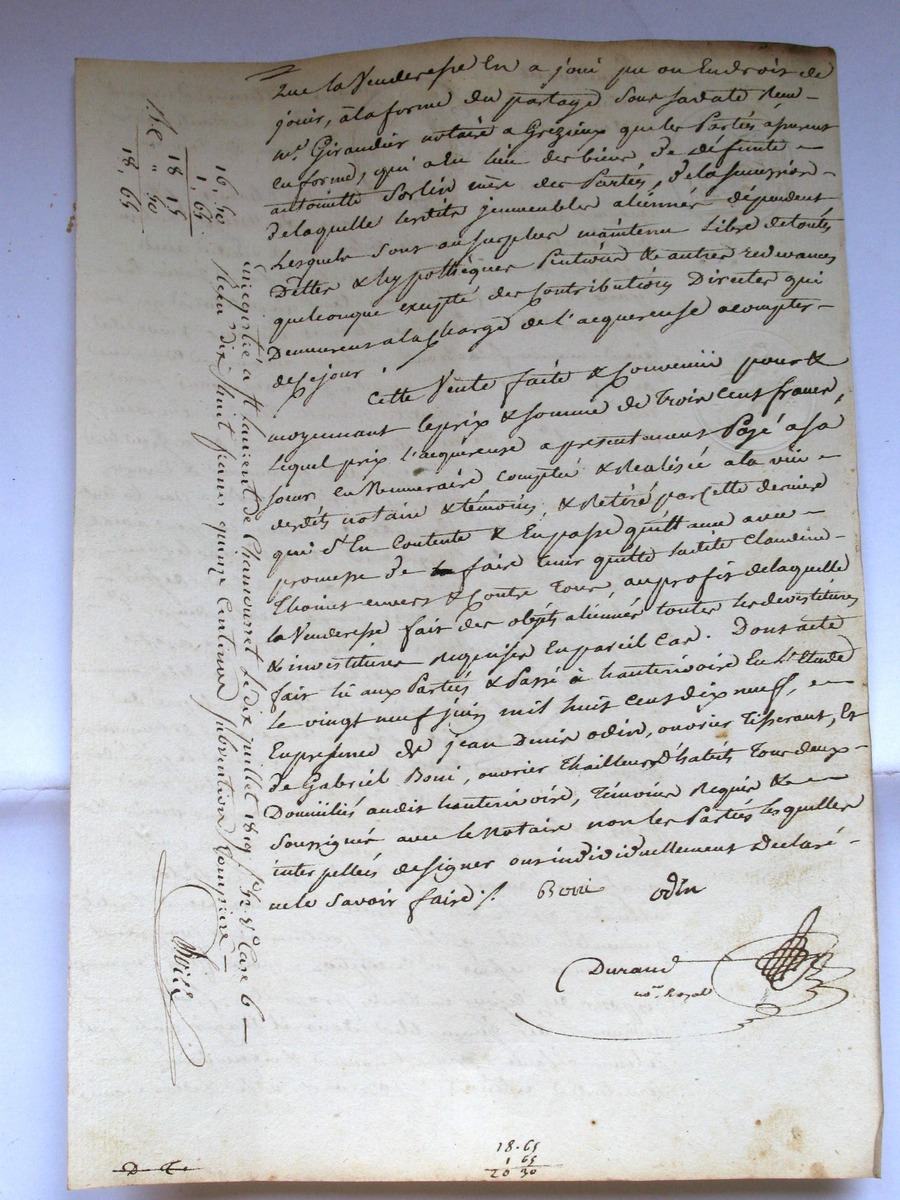 que la Venderesse En a joui pu ou Endroit de
jouir, à la forme du partage Sous sadate Reçu
mr. Giraudier notaire a Grezieux que les Parties aparent
en forme, qui a Eu lieu des biens de défunte
antoinette Sorlin mère des Parties, de la succession
de laquelle lesdits jmmeubles aliennés dépendent
Lesquels sont au surplus maintenu Libre de touts
Dettes & hypothèques Pentions & autres Redevances
quelconque excepté des Contributions Directes qui
Demeurent a la Charge de l'acquereuse acompter
de Cejour ./.
Cette Vente faite & Convenue pour &
moyennant le prix & somme de Trois Cent francs,
Lequel prix l'acquéreuse a presentement Payé a sa
sœur en Numeraire Compté & Realisée a la vüe
desdits notaire & témoins, & Retiré par Cette derniere
qui s'En Contente & En passe quittance avec
promesse de faire tenir quitte ladite Claudine
Thoinet envers & Contre Tous, au profit de laquelle
la Venderesse fait des objets aliennés toutes les devestitures
& investitures Requises En pareil Cas. Dont acte
fait lû aux Parties & Passé à hauterivoire En l'Etude
Le vingt neuf juin mil huit Cent dix neuf, en
Enpresence de jean Denis odin, ouvrier Tisserant, Et
de Gabriel Boni, ouvrier Thailleur D'habits Tous deux
Domiciliés audit hauterivoire, Témoins Requis &
Soussignés avec le Notaire non les Parties Lesquelles
interpellées de signer ont individuellement Declaré
ne le Savoir faire ./. Boni odin
Durand
nore. Royal
Enregistré à St laurent de Chamousset le dix juillet 1819 fo. 72 Vo. Case 6
Reçu dix huit francs quinze Centimes subvention Comprise
16, 50
1, 65
18 15
Re " 50
18, 65
18.65
1 65
20 30
D T.